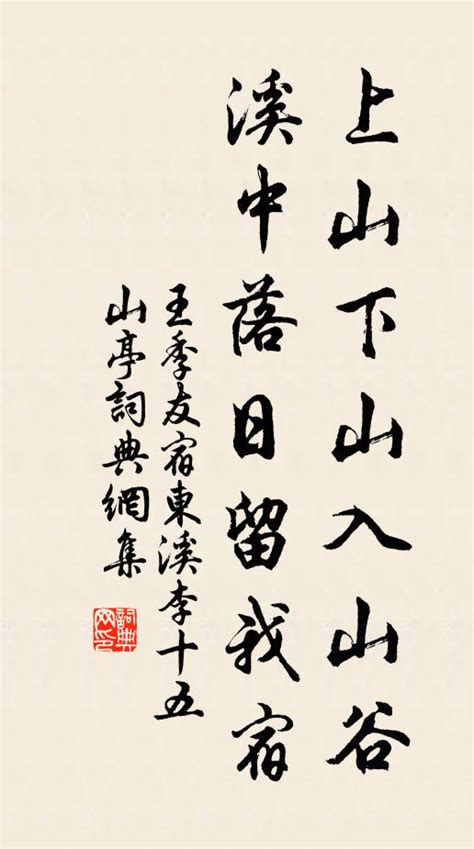 上山下山入山谷
溪中落日留我宿
王季友宿東溪李十五
山亭詞典網集
詞典
网印